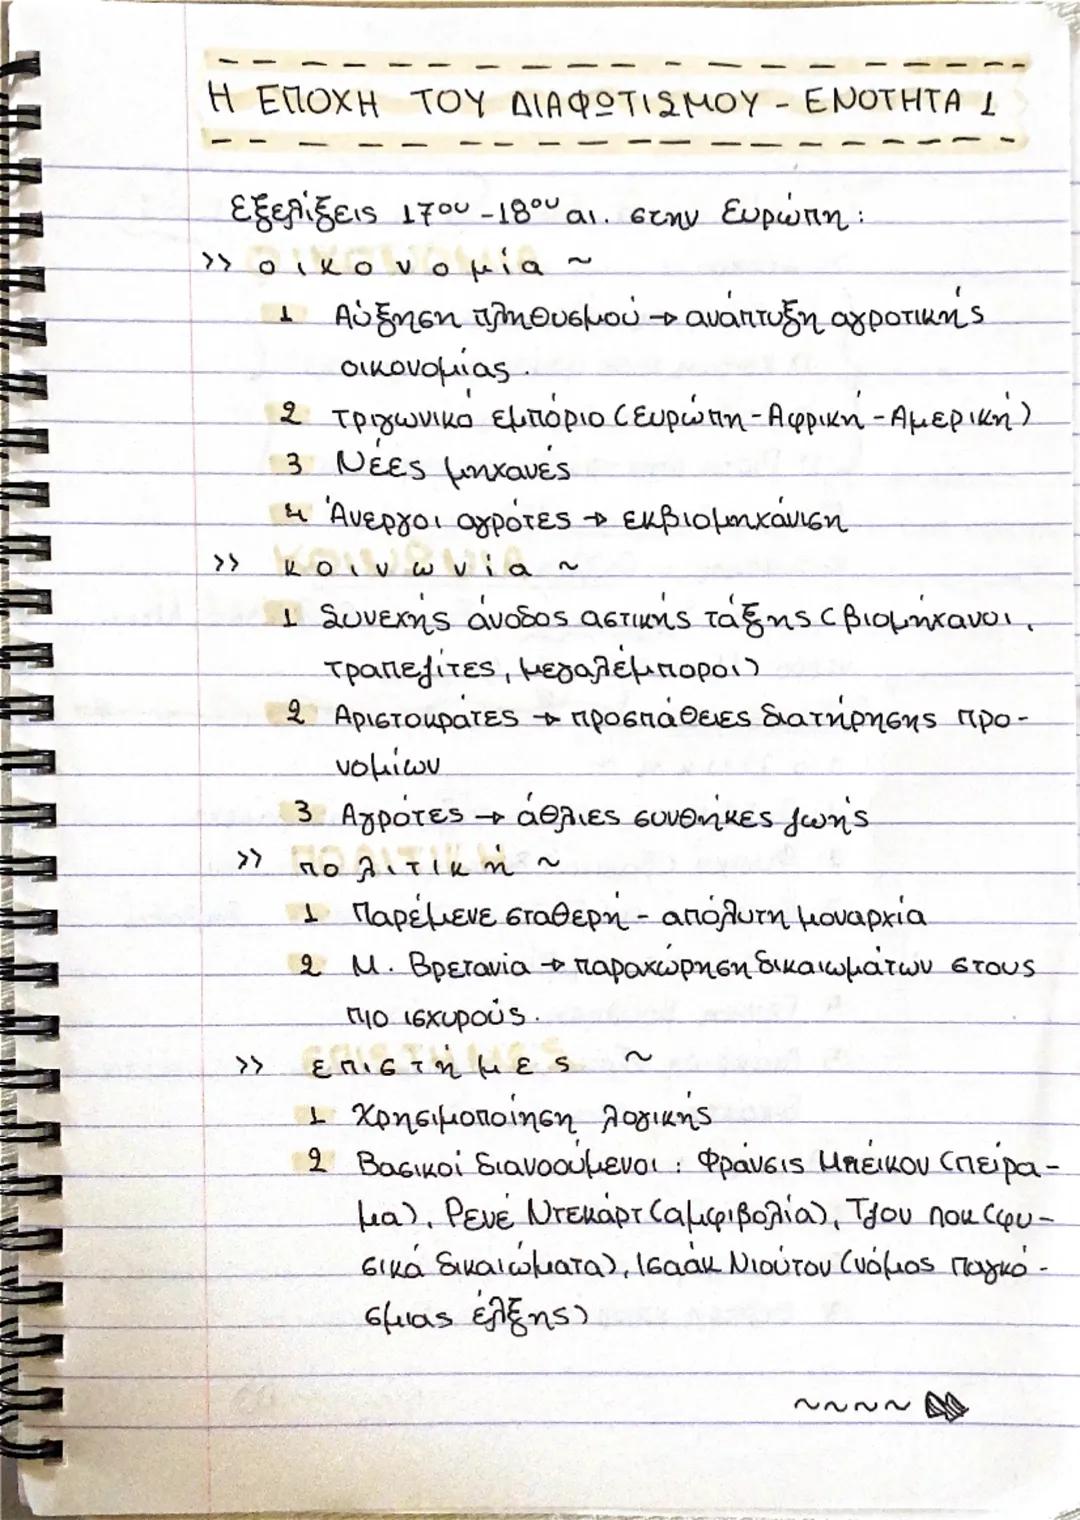 Η ΕΠΟΧΗ ΤΟΥ ΔΙΑΦΩΤΙΣΜΟΥ - ΕΝΟΤΗΤΑ 1
Εξελίξεις 17ου -18ου αι. στην Ευρώπη :
>> οικονομία ~
1 Αύξηση πληθυσμού → ανάπτυξη αγροτικής
οικονομίας.
2 Τριγωνικό εμπόριο (Ευρώπη - Αφρική - Αμερική)
3 Νέες μηχανές
4 Άνεργοι αγρότες → εκβιομηχάνιση
>> κοινωνία ~
1 Συνεχής άνοδος αστικής τάξης (βιομήχανοι,
τραπεζίτες, μεγαλέμποροι)
2 Αριστοκράτες → προσπάθειες διατήρησης προ-
νομίων
3 Αγρότες → άθλιες συνθήκες ζωής
>> πολιτική ~
1 Παρέμενε σταθερή - απόλυτη μοναρχία
2 Μ. Βρετανία → παραχώρηση δικαιωμάτων στους
πιο ισχυρούς.
>> επιστήμες ~
1 Χρησιμοποίηση λογικής
2 Βασικοί διανοούμενοι : Φράνσις Μπέικον (πείρα-
μα), Ρενέ Ντεκάρτ (αμφιβολία), Τζον Λοκ (φυ-
σικά δικαιώματα), Ισαάκ Νιούτον (νόμος παγκό-
σμιας έλξης)